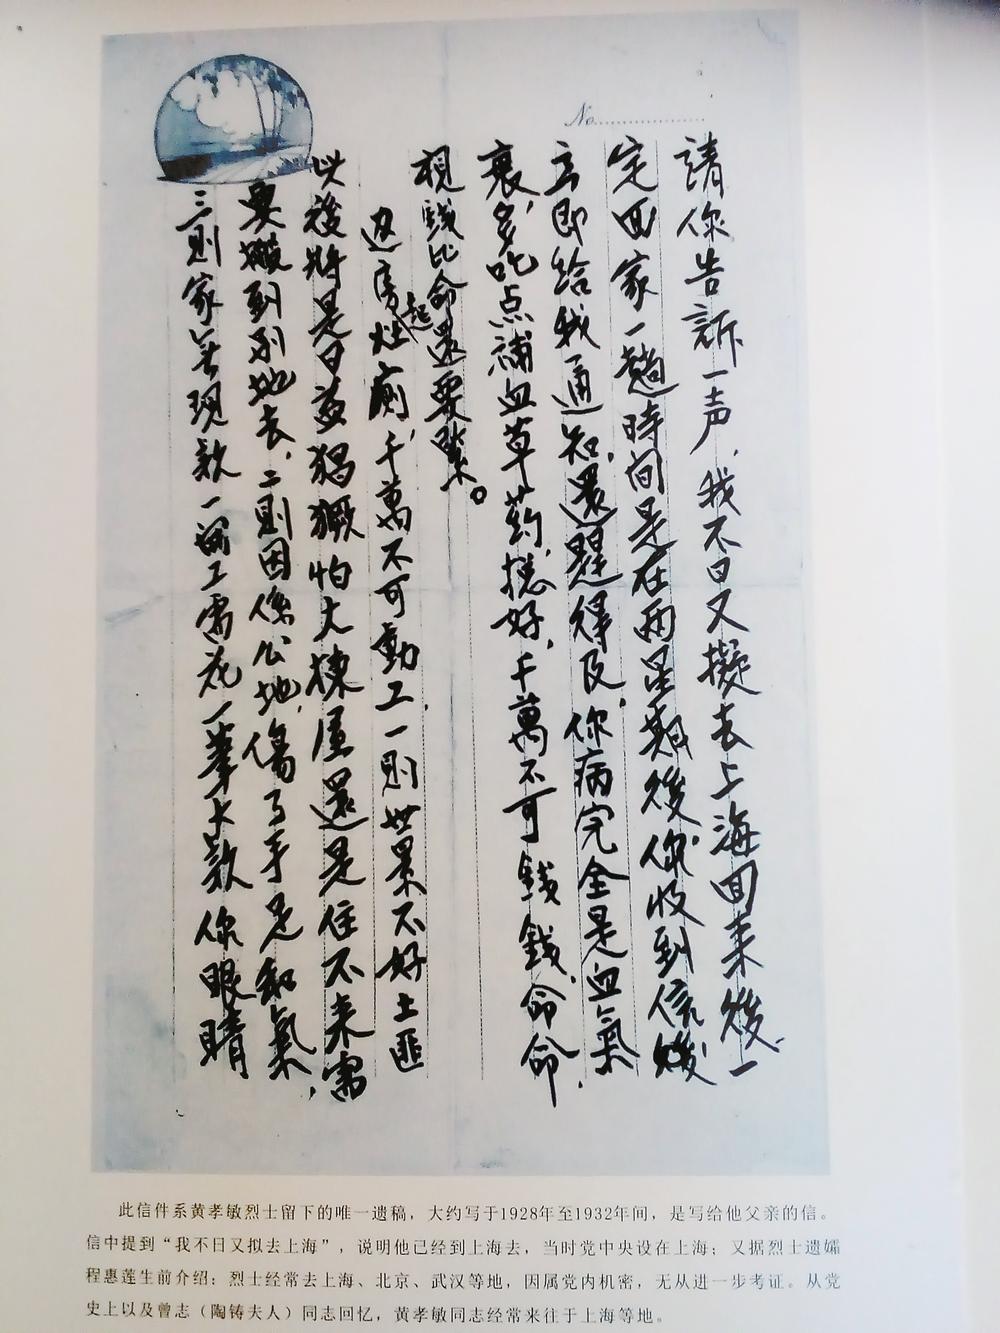 No.
請你告訴一声，我不日又擬去上海回来後，一
定回家一趟時間是在兩星期後，你收到信後
立即给我通知，還趕得及，你病完全是血氣
衰，多吃点補血草药，總好，千萬不可錢錢，命命，
視錢比命還要緊。
造房灶廁，千萬不可動工，一則世景不好土匪
起
以後將是日益猖獗怕大棟屋還是住不来需
要搬到别地去，二則因係公地，傷了手足和氣，
三則家無現款一開工需花一筆大款你眼睛
此信件系黄孝敏烈士留下的唯一遗稿，大约写于1928年至1932年间，是写给他父亲的信。
信中提到“我不日又拟去上海”，说明他已经到上海去，当时党中央设在上海；又据烈士遗孀
程惠莲生前介绍：烈士经常去上海、北京、武汉等地，因属党内机密，无从进一步考证。从党
史上以及曾志（陶铸夫人）同志回忆，黄孝敏同志经常来往于上海等地。